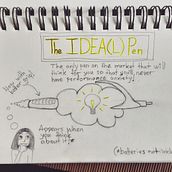 The IDEA(L) Pen
The only pen on the market that will
think for you so that you'll never
have performance anxiety!
Appears when
you think
about it!
(*batteries not included)